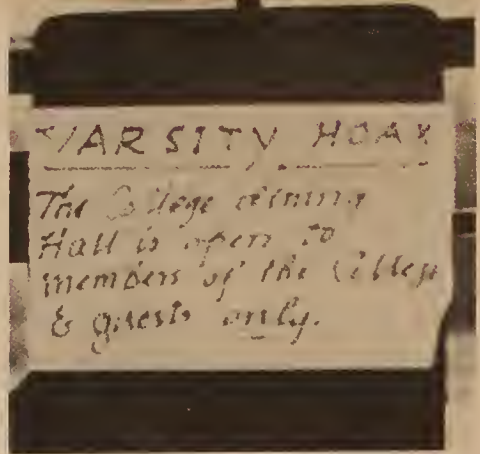 VARSITY HOAX
The College dining
Hall is open to
members of the College
& guests only.